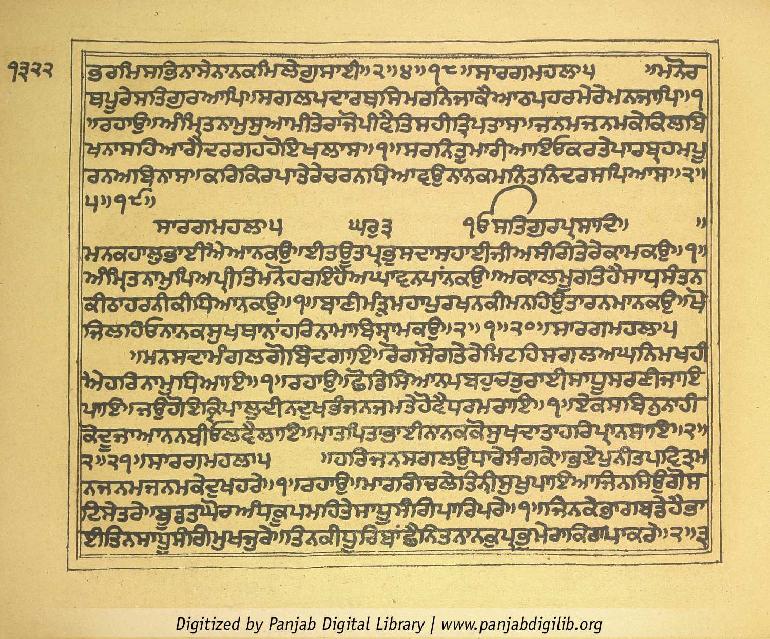 ੧੩੨੨
ਭਰਮਿਸਾਭਿਨਾਸੇਨਾਨਕਮਿਲੇਗੁਸਾਈ॥੨॥੪॥੧੮॥ਸਾਰਗਮਹਲਾ੫ ॥ਮਨੋਰ
ਥਪੂਰੇਸਤਿਗੁਰਆਪਿ॥ਸਗਲਪਦਾਰਥਸਿਮਰਨਿਜਾਕੈਆਠਪਹਰਮੇਰੇਮਨਜਾਪਿ॥੧
॥ਰਹਾਉ॥ਅੰਮ੍ਰਿਤਨਾਮੁਸੁਆਮੀਤੇਰਾਜੋਪੀਵੈਤਿਸਹੀਤ੍ਰਿਪਤਾਸ॥ਜਨਮਜਨਮਕੇਕਿਲਬਿ
ਖਨਾਸਹਿਆਗੈਦਰਗਹਹੋਇਖਲਾਸ॥੧॥ਸਰਨਿਤੁਮਾਰੀਆਇਓਕਰਤੇਪਾਰਬ੍ਰਹਮਪੂ
ਰਨਅਬਿਨਾਸ॥ਕਰਿਕਿਰਪਾਤੇਰੇਚਰਨਧਿਆਵਉਨਾਨਕਮਨਿਤਨਿਦਰਸਪਿਆਸ॥੨॥
੫॥੧੯॥
ਸਾਰਗਮਹਲਾ੫ ਘਰੁ੩ ੴਸਤਿਗੁਰਪ੍ਰਸਾਦਿ॥ ॥
ਮਨਕਹਾਲੁਭਾਈਐਆਨਕਉ॥ਈਤਊਤਪ੍ਰਭੁਸਦਾਸਹਾਈਜੀਅਸੰਗਿਤੇਰੇਕਾਮਕਉ॥੧॥
ਅੰਮ੍ਰਿਤਨਾਮੁਪ੍ਰਿਅਪ੍ਰੀਤਿਮਨੋਹਰਇਹੈਅਘਾਵਨਪਾਂਨਕਉ॥ਅਕਾਲਮੂਰਤਿਹੈਸਾਧਸੰਤਨ
ਕੀਠਾਹਰਨੀਕੀਧਿਆਨਕਉ॥੧॥ਬਾਣੀਮੰਤ੍ਰੁਮਹਾਪੁਰਖਨਕੀਮਨਹਿਉਤਾਰਨਮਾਨਕਉ॥ਖੋ
ਜਿਲਹਿਓਨਾਨਕਸੁਖਥਾਨਾਂਹਰਿਨਾਮਾਬਿਸ੍ਰਾਮਕਉ॥੨॥੧॥੨੦॥ਸਾਰਗਮਹਲਾ੫
॥ਮਨਸਦਾਮੰਗਲਗੋਬਿੰਦਗਾਇ॥ਰੋਗਸੋਗਤੇਰੇਮਿਟਹਿਸਗਲਅਘਨਿਮਖਹੀ
ਐਹਰਿਨਾਮੁਧਿਆਇ॥੧॥ਰਹਾਉ॥ਛੋਡਿਸਿਆਨਪਬਹੁਚਤੁਰਾਈਸਾਧੂਸਰਣੀਜਾਇ
ਪਾਇ॥ਜਉਹੋਇਕ੍ਰਿਪਾਲੁਦੀਨਦੁਖਭੰਜਨਜਮਤੇਹੋਵੈਧਰਮਰਾਇ॥੧॥ਏਕਸਬਿਨੁਨਾਹੀ
ਕੋਦੂਜਾਆਨਨਬੀਓਲਵੈਲਾਇ॥ਮਾਤਪਿਤਾਭਾਈਨਾਨਕਕੋਸੁਖਦਾਤਾਹਰਿਪ੍ਰਾਨਸਾਇ॥੨॥
੨॥੨੧॥ਸਾਰਗਮਹਲਾ੫ ॥ਹਰਿਜਨਸਗਲਉਧਾਰੇਸੰਗਕੇ॥ਭਏਪੁਨੀਤਪਵਿਤ੍ਰਮ
ਨਜਨਮਜਨਮਕੇਦੁਖਹਰੇ॥੧॥ਰਹਾਉ॥ਮਾਰਗਿਚਲੇਤਿਨ੍ਹੀਸੁਖੁਪਾਇਆਜਿਨ੍ਹਸਿਉਗੋਸ
ਟਿਸੇਤਰੇ॥ਬੂਡਤਘੋਰਅੰਧਕੂਪਮਹਿਤੇਸਾਧੂਸੰਗਿਪਾਰਿਪਰੇ॥੧॥ਜਿਨਕੇਭਾਗਬਡੇਹੈਭਾ
ਈਤਿਨਸਾਧੂਸੰਗਿਮੁਖਜੁਰੇ॥ਤਿਨਕੀਧੂਰਿਬਾਂਛੈਨਿਤਨਾਨਕੁਪ੍ਰਭੁਮੇਰਾਕਿਰਪਾਕਰੇ॥੨॥੩
Digitized by Panjab Digital Library | www.panjabdigilib.org